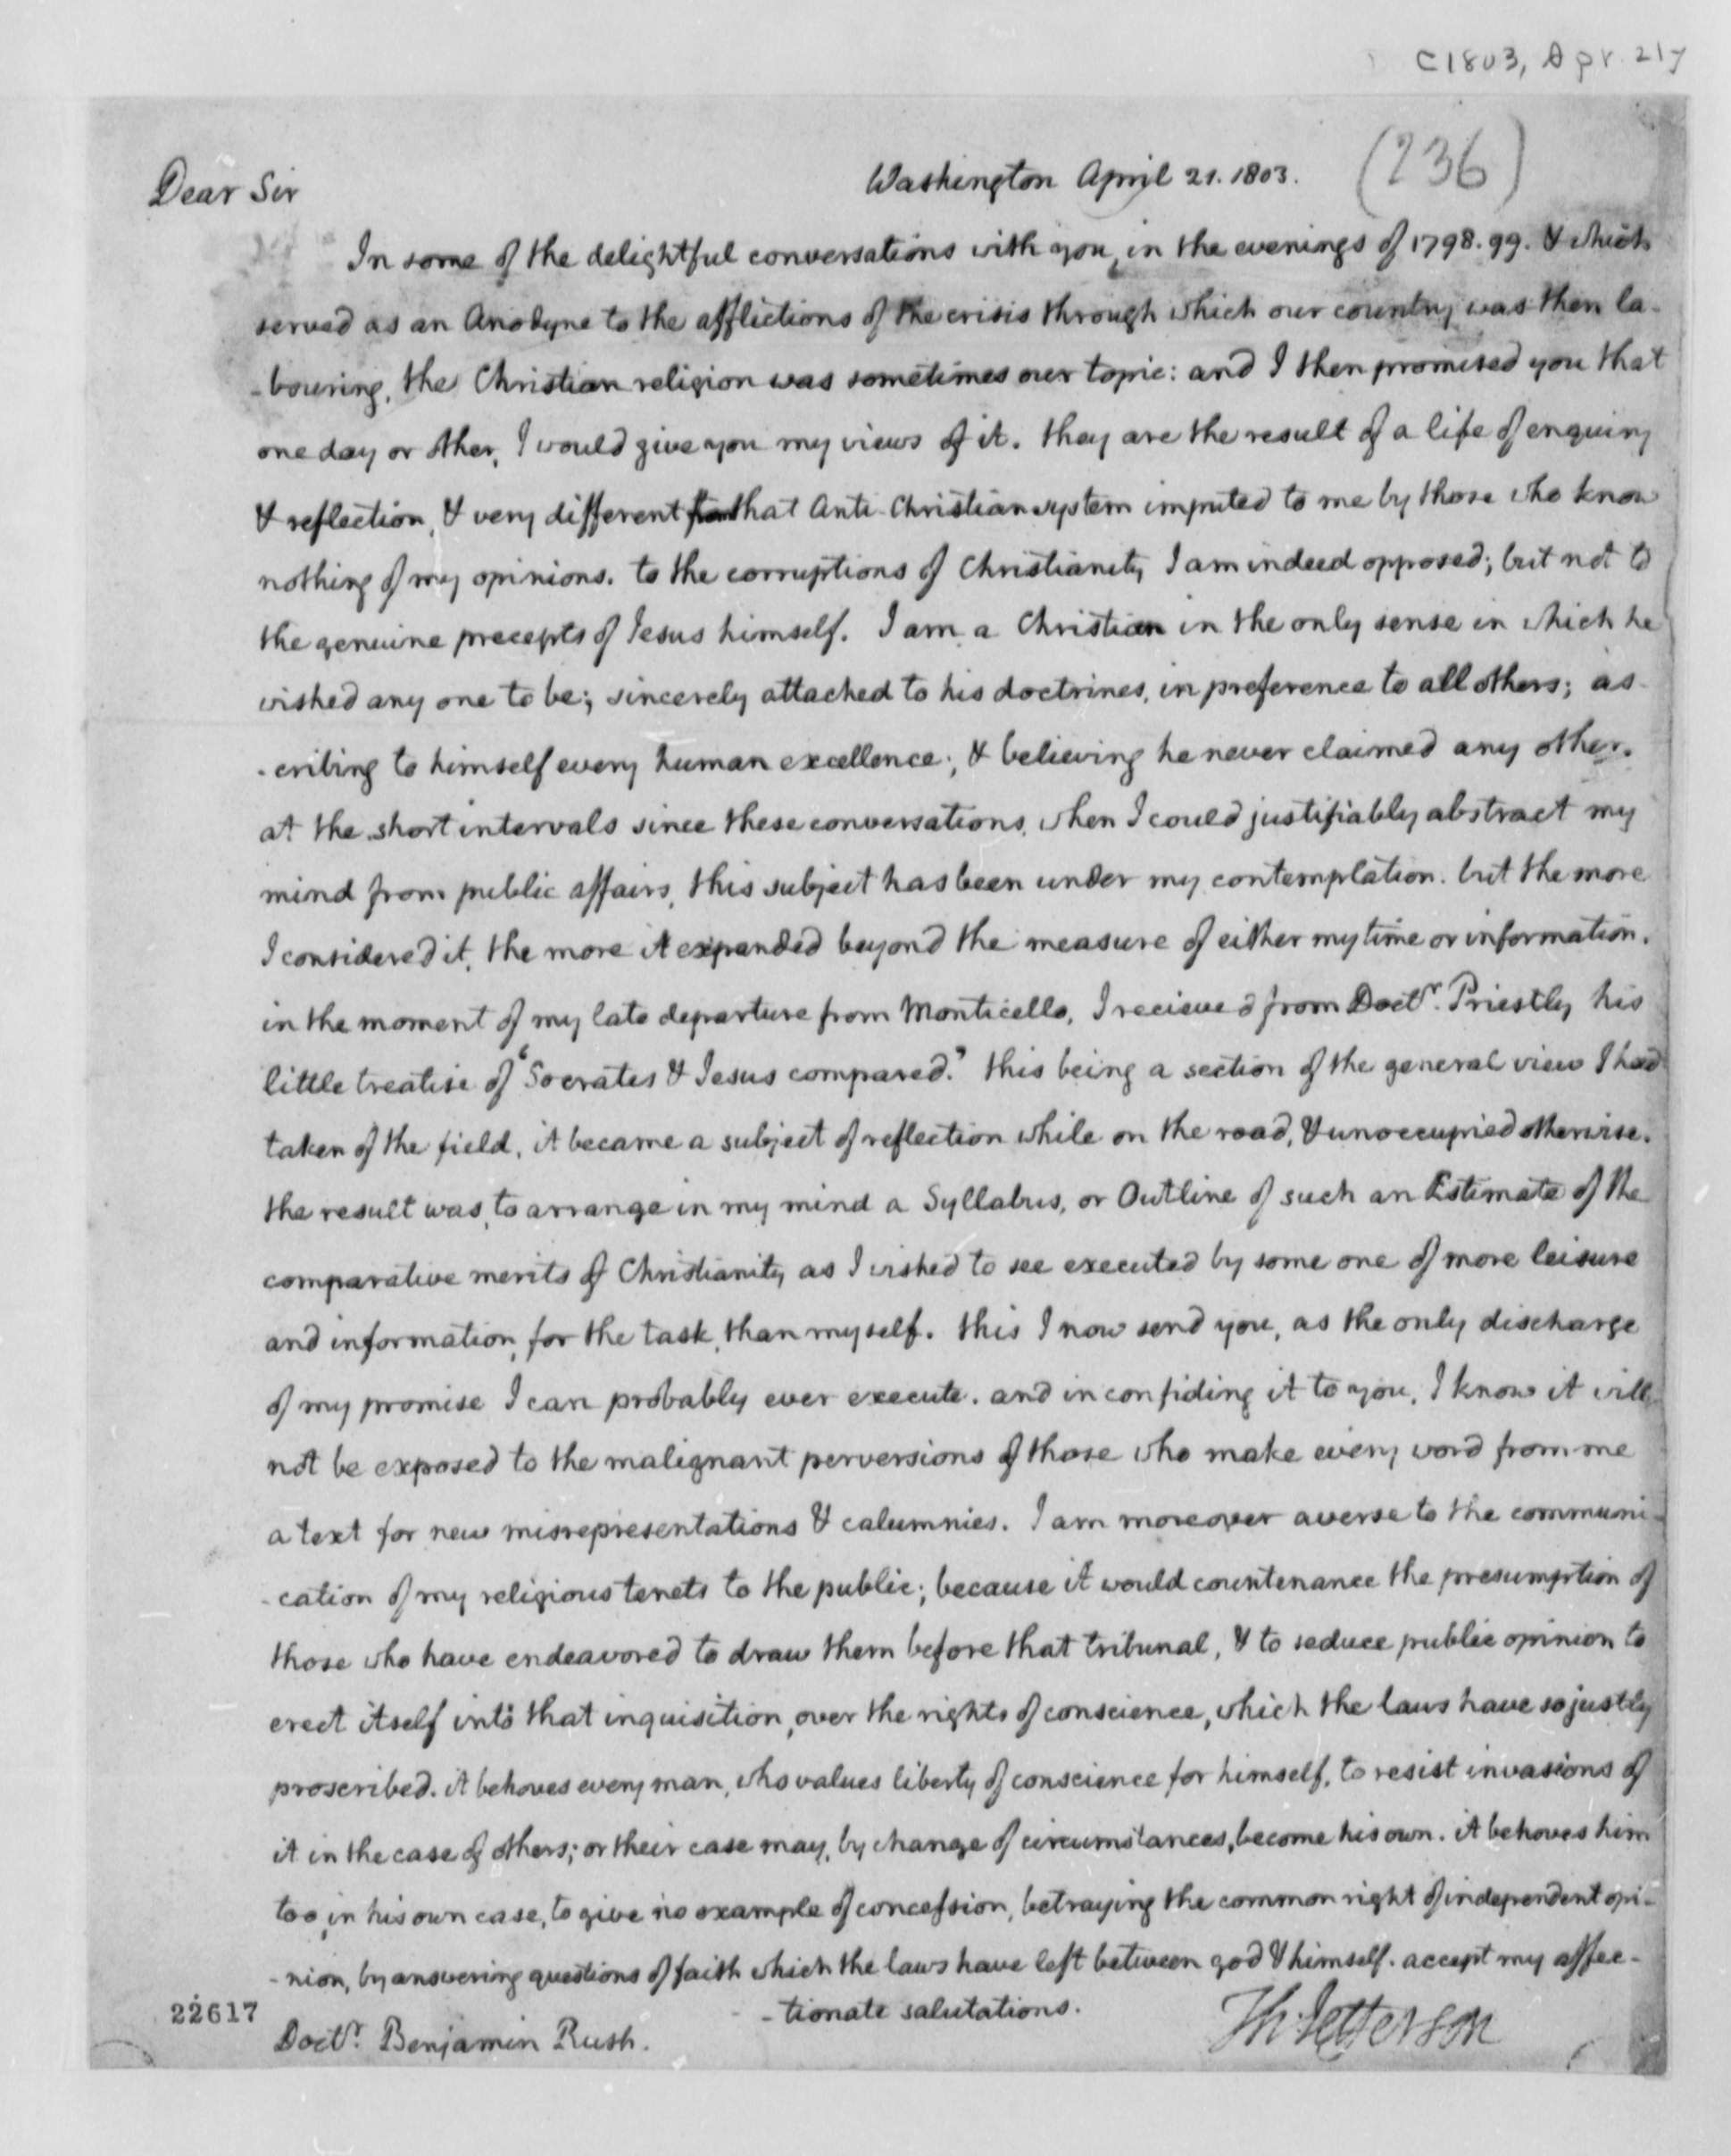 C1803, Apr 21]
(236)
Washington April 21. 1803.
Dear Sir
In some of the delightful conversations with you, in the evenings of 1798.99. & which
served as an Anodyne to the afflictions of the crisis through which our country was then la-
-bouring, the Christian religion was sometimes our topic: and I then promised you that
one day or other, I would give you my views of it. they are the result of a life of enquiry
& reflection, & very different from that Anti-Christian system imputed to me by those who know
nothing of my opinions. to the corruptions of Christianity I am indeed opposed; but not to
the genuine precepts of Jesus himself. I am a Christian in the only sense in which he
wished any one to be; sincerely attached to his doctrines, in preference to all others; as-
-cribing to himself every human excellence; & believing he never claimed any other.
at the short intervals since these conversations, when I could justifiably abstract my
mind from public affairs, this subject has been under my contemplation. but the more
I considered it, the more it expanded beyond the measure of either my time or information.
in the moment of my late departure from Monticello, I recieved from Doctr. Priestly his
little treatise of 'Socrates & Jesus compared.' this being a section of the general view I had
taken of the field, it became a subject of reflection while on the road, & unoccupied otherwise.
the result was, to arrange in my mind a Syllabus, or Outline of such an Estimate of the
comparative merits of Christianity, as I wished to see executed by some one of more leisure
and information, for the task, than myself. this I now send you, as the only discharge
of my promise I can probably ever execute. and in confiding it to you, I know it will
not be exposed to the malignant perversions of those who make every word from me
a text for new misrepresentations & calumnies. I am moreover averse to the communi-
-cation of my religious tenets to the public; because it would countenance the presumption of
those who have endeavored to draw them before that tribunal, & to seduce public opinion to
erect itself into that inquisition, over the rights of conscience, which the laws have so justly
proscribed. it behoves every man, who values liberty of conscience for himself, to resist invasions of
it in the case of others; or their case may, by change of circumstances, become his own. it behoves him
too, in his own case, to give no example of concession, betraying the common right of independent opi-
-nion, by answering questions of faith which the laws have left between god & himself. accept my affec-
-tionate salutations.
Th: Jefferson
22617
Doctr. Benjamin Rush.